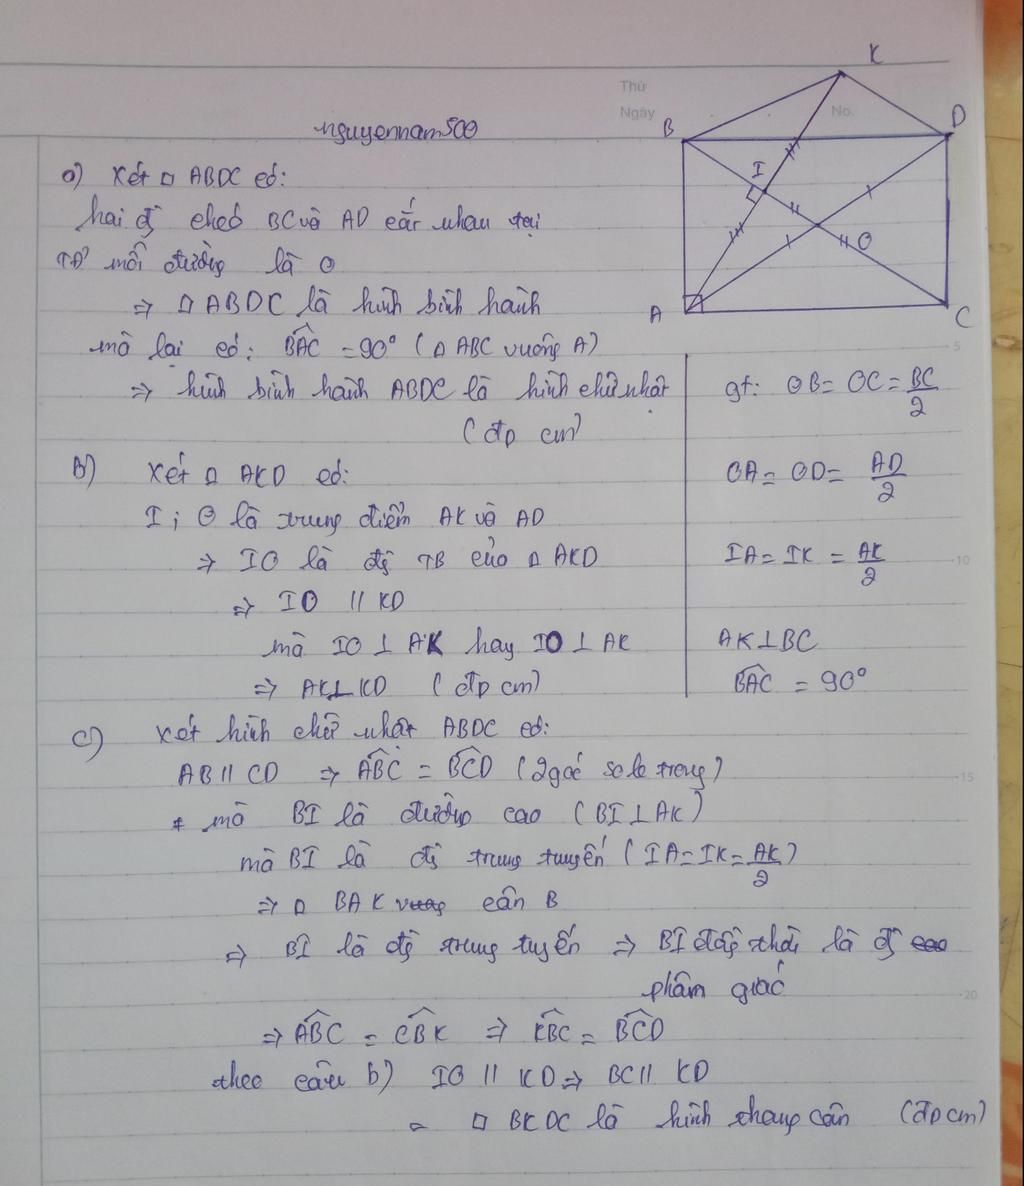 Thứ
Ngày
No.
nguyennam500
K
B
D
I
O
A
C
a) Xét □ ABDC có:
hai đg chéo BC và AD cắt nhau tại
TĐ mỗi đường là O
⇒ □ ABDC là hình bình hành
mà lại có: BAC = 90° (△ ABC vuông A)
⇒ hình bình hành ABDC là hình chữ nhật
(đp cm)
gt: OB = OC = BC/2
OA = OD = AD/2
IA = IK = AK/2
AK ⊥ BC
BAC = 90°
B) Xét △ AKD có:
I; O là trung điểm AK và AD
⇒ IO là đg TB của △ AKD
⇒ IO // KD
mà IO ⊥ AK hay IO ⊥ AK
⇒ AK ⊥ KD (đp cm)
C) Xét hình chữ nhật ABDC có:
AB // CD ⇒ ABC = BCD (2 góc so le trong)
+ mà BI là đường cao (BI ⊥ AK)
mà BI là đg trung tuyến (IA = IK = AK/2)
⇒ △ BAK vuông cân B
⇒ BI là đg trung tuyến ⇒ BI đồng thời là đg cao
phân giác
⇒ ABC = CBK ⇒ KBC = BCD
theo câu b) IO // KD ⇒ BC // KD
⇒ □ BKDC là hình thang cân (đp cm)
5
10
15
20